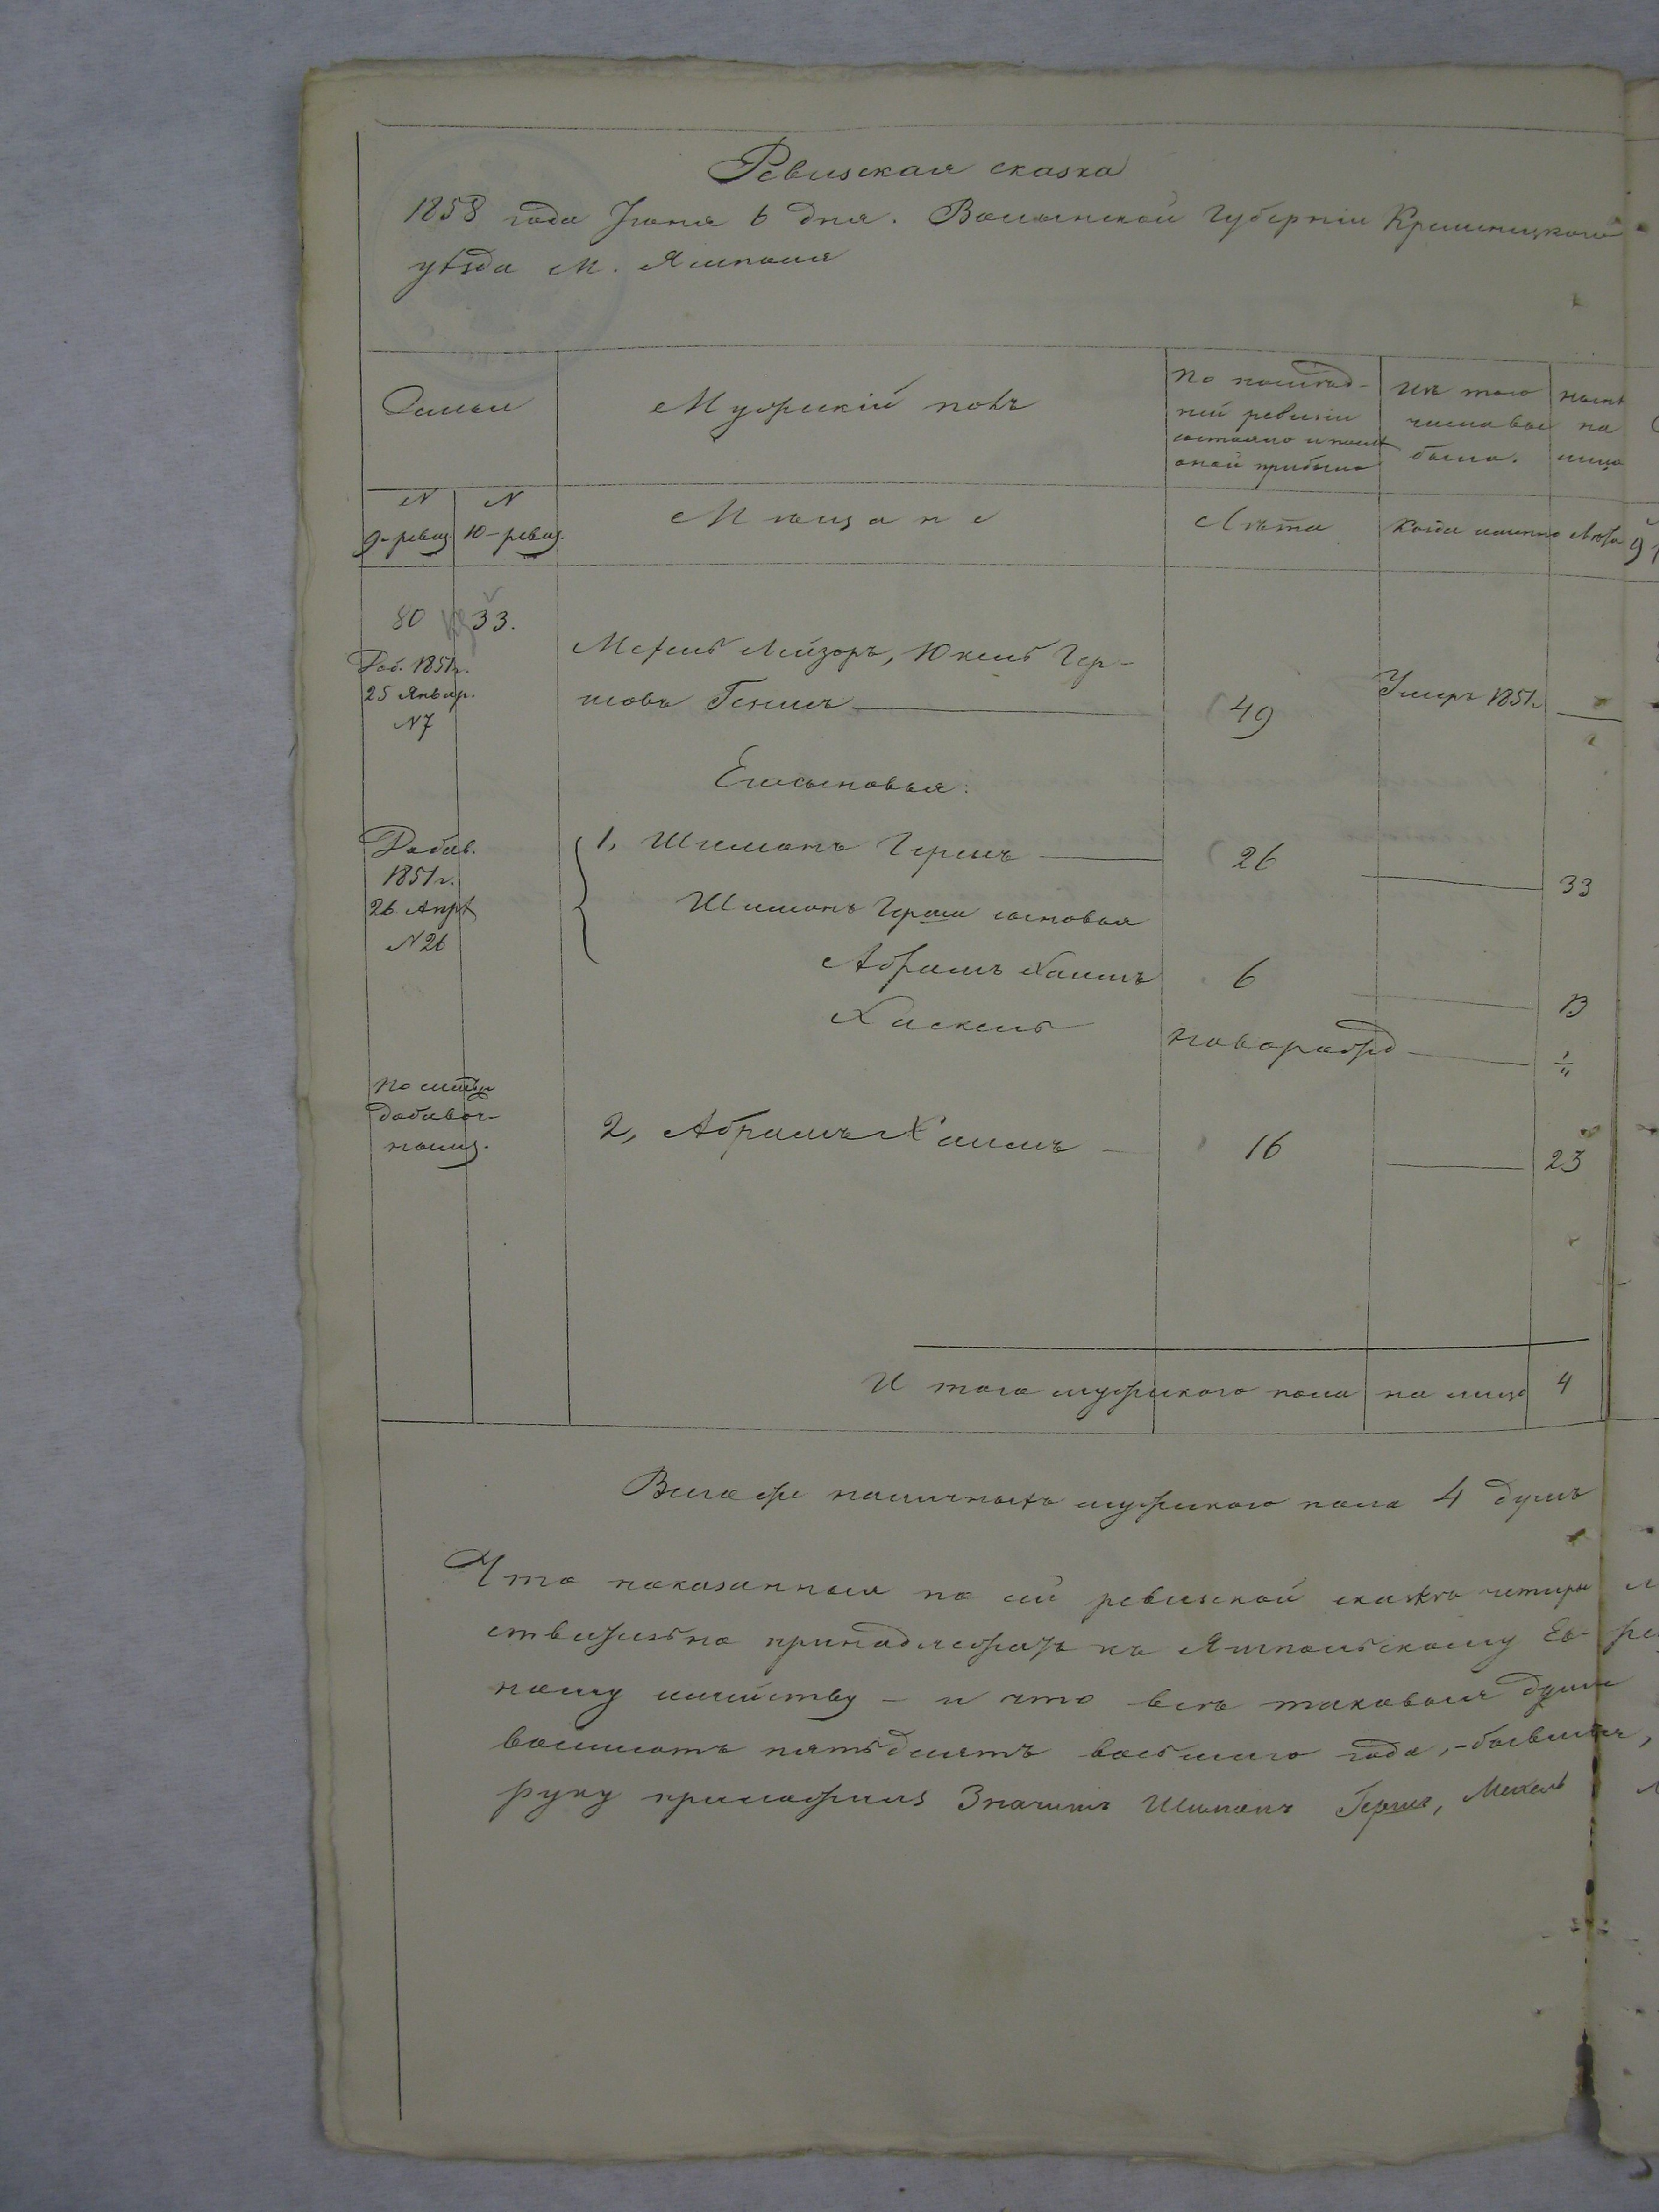 Ревизская сказка
1858 года Іюня 6 дня. Волынской Губерніи Кременецкого
уѣзда М. Ямполя
Семьи
Мужескій полъ
По послѣд-
ней ревизіи
состояло и послѣ
оной прибыло
Изъ того
числа вы
было.
нынѣ
на
лицо
N
9-ревиз.
N
10-ревиз.
Мѣщане
Лѣта
Когда именно
Лѣта
80
33.
Доб. 1851г.
25 Январ.
N7
Мехель Лейзоръ, Юкель Гер-
шовъ
49
Умеръ 1851г
Его сыновья:
Добав.
1851г.
26 Апрѣ
N 26
1, Шимонъ Гершъ
26
33
Шимонъ Герша сыновья
Абрамъ Хаимъ
6
13
Хаскель
новорожд
1/"
По симъ
добавоч-
нымъ.
2, Абрамъ Хаимъ
16
23
И того мужеского пола на лицо 4
Всего же наличныхъ мужеского пола 4 душъ
Что показанныя по сей ревизской сказкѣ четыре
ствительно принадлежатъ къ Ямпольскому Ев-
ному мѣству - и что всѣ таковыя души
восимотъ пятьдесятъ восьмого года,
руку приложилъ Значитъ Шимонъ Герша, Мехель